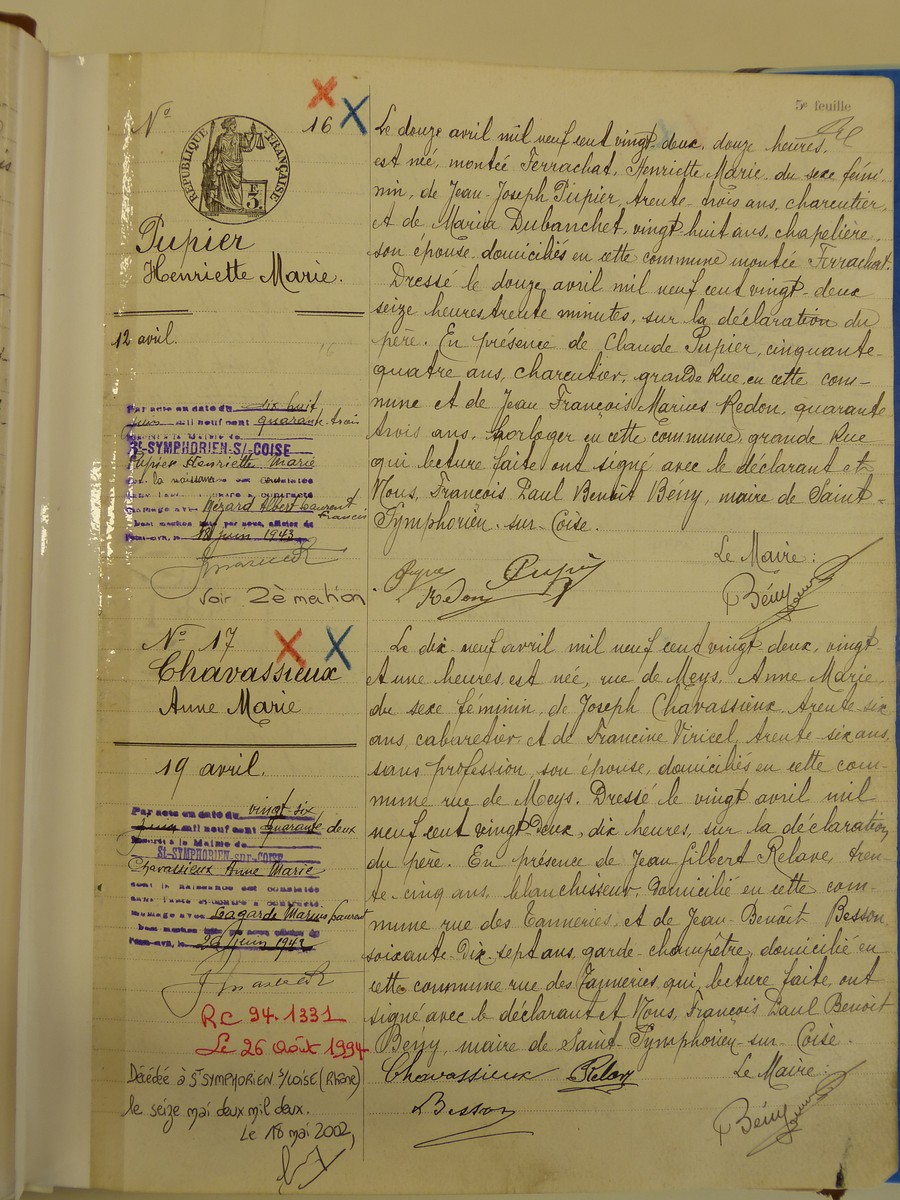 5e feuille
No 16
RÉPUBLIQUE FRANÇAISE
Pupier
Henriette Marie.
12 avril.
Par acte en date du dix huit
juin mil neuf cent quarante-trois
à la Mairie de
St-SYMPHORIEN-S/-COISE
Pupier Henriette Marie
dont la naissance est constatée
dans l'acte ci-contre a contracté
mariage avec Mézard Albert Laurent
Francis
18 juin 1943
voir 2è mention
Le douze avril mil neuf cent vingt-deux, douze heures,
est née, montée Ferrachat, Henriette Marie, du sexe fémi-
nin, de Jean-Joseph Pupier, trente-trois ans, charcutier,
et de Maria Dubanchet, vingt huit ans, chapelière,
son épouse, domiciliés en cette commune montée Ferrachat.
Dressé le douze avril mil neuf cent vingt-deux
seize heures trente minutes, sur la déclaration du
père. En présence de Claude Pupier, cinquante-
quatre ans, charcutier, grande Rue en cette com-
mune et de Jean François Marius Redon, quarante
trois ans, horloger en cette commune, grande Rue
qui lecture faite ont signé avec le déclarant et
Nous, François Paul Benoît Bény, maire de Saint-
Symphorien-sur-Coise.
Le Maire:
Redon Pupier
Bény
No 17
Chavassieux
Anne Marie
19 avril.
Par acte en date du vingt-six
juin mil neuf cent quarante-deux
à la Mairie de
St-SYMPHORIEN-sur-COISE
Chavassieux Anne Marie
dont la naissance est constatée
dans l'acte ci-contre a contracté
mariage avec Lagarde Marius Laurent
26 juin 1942
RC 94.1331
Le 26 Août 1994
Décédée à St SYMPHORIEN S/COISE (Rhône)
le seize mai deux mil deux.
Le 18 mai 2002,
Le dix neuf avril mil neuf cent vingt deux, vingt-
et une heures, est née, rue de Meys, Anne Marie,
du sexe féminin, de Joseph Chavassieux, trente-six
ans, cabaretier, et de Francine Viricel, trente-six ans,
sans profession, son épouse, domiciliés en cette com-
mune rue de Meys. Dressé le vingt avril mil
neuf cent vingt-deux, dix heures, sur la déclaration
du père. En présence de Jean Gilbert Relave, tren-
te-cinq ans, blanchisseur, domicilié en cette com-
mune rue des Tanneries, et de Jean-Benoît Besson
soixante-dix-sept ans, garde-champêtre, domicilié en
cette commune rue des Tanneries, qui, lecture faite, ont
signé avec le déclarant et Nous, François Paul Benoît
Bény, maire de Saint-Symphorien-sur-Coise.
Chavassieux Relave Le Maire:
Besson Bény